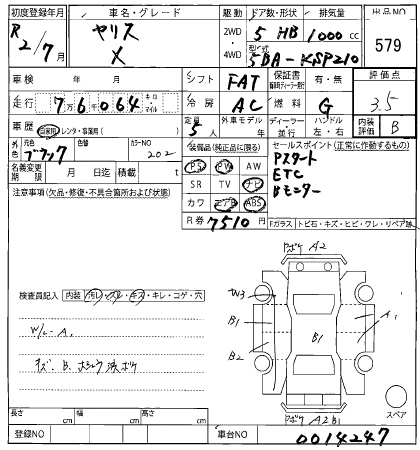 初度登録年月 車名・グレード 駆動 ドア数・形状 排気量 出品NO
R2/7月 ヤリス X 2WD 4WD 5 HB 1000 cc 579
型式 5BA-KSP210
車検 年 月 シフト FAT 保証書 有・無 評価点
走行 7万6千064 キロ・マイル 冷房 AC 燃料 G 3.5
車歴 自家用・レンタ・事業用( ) 定員 5人 外車モデル ディーラー・並行 ハンドル 左・右 内装評価 B
元色 ブラック 色替 カラーNO 202
装備品(純正品に限る) セールスポイント(正常に作動するもの)
名義変更期限 月 日迄 積載 t PS PW AW Pスタート
注意事項(欠品・修復・不具合箇所および状態) SR TV ナビ ETC
カワ エアB ABS Bモニター
R券 ¥7510円
Fガラス トビ石・キズ・ヒビ・ワレ・リペア跡
A2
検査員記入 内装 汚レ・スレ・キズ・キレ・コゲ・穴
W3
B1 A1
W/L-A1
B2 B1
キズ、B、
スペア
A2 B1
長さ cm 幅 cm 高さ cm
登録NO 車台NO 0014247